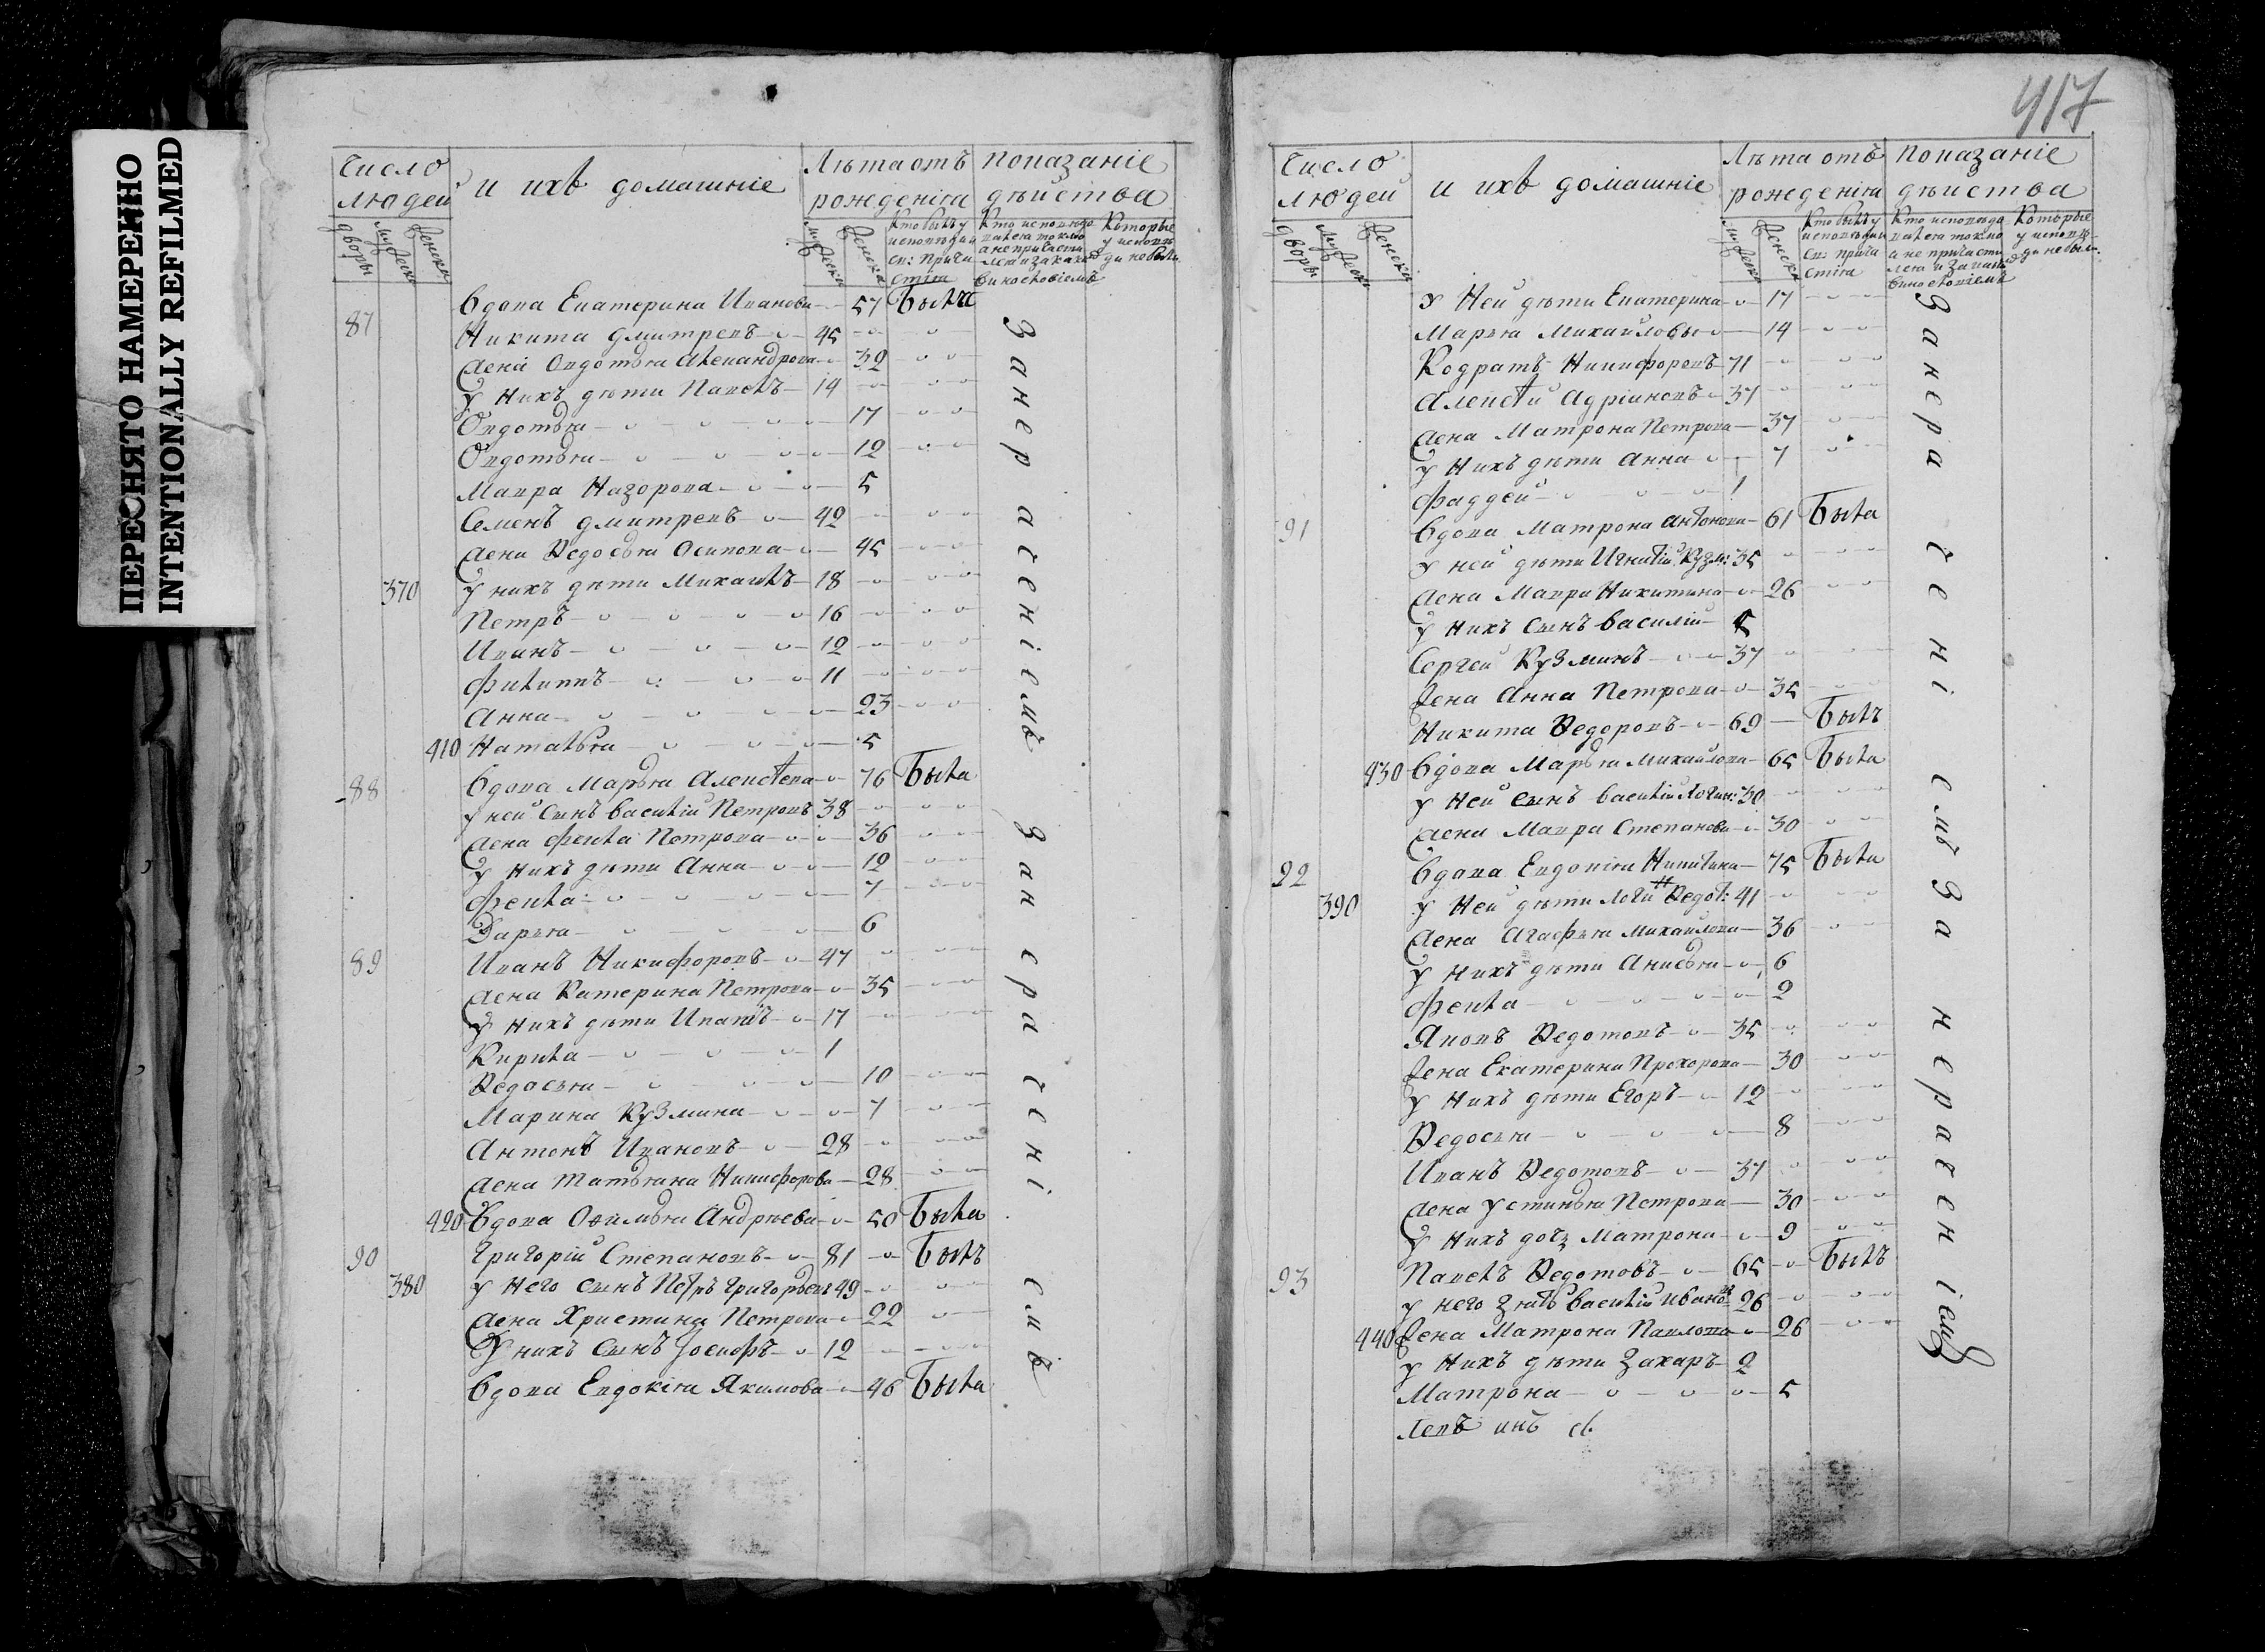 ПЕРЕСНЯТО НАМЕРЕННО
INTENTIONALLY REFILMED
Число людей
и ихъ домашніе
Лѣта отъ рожденія
Показаніе дѣйства
дворы
мужеска
женска
мужеска
женска
Кто былъ у исповѣди и св: причастія
Кто исповѣдовался токмо а не причастился и за какимъ винословіемъ
Которые у исповѣди не были
Вдова Екатерина Иванова 57 Была
87 Никита Дмитревъ 45
Жена Овдотья Александрова 39
У Нихъ дѣти Павелъ 14
Овдотья 17
Овдотья 12
Мавра Назорова 5
Семенъ Дмитревъ 42
Жена Ѳедосья Осипова 45
370 У нихъ дѣти Михаилъ 18
Петръ 16
Иванъ 12
Филиппъ 11
Анна 23
410 Наталья 5
88 Вдова Марья Алексѣева 76 Была
У ней Сынъ Василій Петровъ 38
Жена Фекла Петрова 36
У Нихъ дѣти Анна 12
Фекла 7
Дарья 6
89 Иванъ Никифоровъ 47
Жена Катерина Петрова 35
У Нихъ дѣти Иванъ 17
Кирила 1
Ѳедосья 10
Марина Кузмина 7
Антонъ Ивановъ 28
Жена Татьяна Никифорова 28
420 Вдова Офимья Андрѣева 50 Была
90 Григорій Степановъ 81 Былъ
380 У Него сынъ Петръ Григорьевъ 49
Жена Христина Петрова 22
У нихъ Сынъ Іосифъ 12
Вдова Евдокія Якимова 46 Была
За нерадѣніемъ
За нерадѣніемъ
417
Число людей
и ихъ домашніе
Лѣта отъ рожденія
Показаніе дѣйства
дворы
мужеска
женска
мужеска
женска
Кто былъ у исповѣди и св: причастія
Кто исповѣдовался токмо а не причастился и за какимъ винословіемъ
Которые у исповѣди не были
У Ней дѣти Екатерина 17
Марья Михайловы 14
Кодратъ Никифоровъ 71
Алексѣй Адріановъ 37
Жена Матрона Петрова 37
У Нихъ дѣти Анна 7
Фаддей 1
91 Вдова Матрона Антонова 61 Была
У ней дѣти Игнатій Кузм: 35
Жена Мавра Никитина 26
У Нихъ Сынъ Василій 5
Сергей Кузминъ 37
Жена Анна Петрова 35
Никита Ѳедоровъ 69 Былъ
430 Вдова Марья Михайлова 65 Была
У Ней сынъ Василій Логин: 30
Жена Мавра Степанова 30
92 Вдова Евдокія Никитина 75 Была
390 У Ней дѣти Логинъ Ѳедот: 41
Жена Агафья Михайлова 36
У Нихъ дѣти Анисья 6
Фекла 2
Яковъ Ѳедотовъ 35
Жена Екатерина Прохорова 30
У Нихъ дѣти Егоръ 12
Ѳедосья 8
Иванъ Ѳедотовъ 37
Жена Устинья Петрова 30
У Нихъ дочь Матрона 9
93 Павелъ Ѳедотовъ 65 Былъ
У него Зять Василій Ивановъ 26
440 Жена Матрона Павлова 26
У Нихъ дѣти Захаръ 2
Матрона 5
За нерадѣніемъ
За нерадѣніемъ